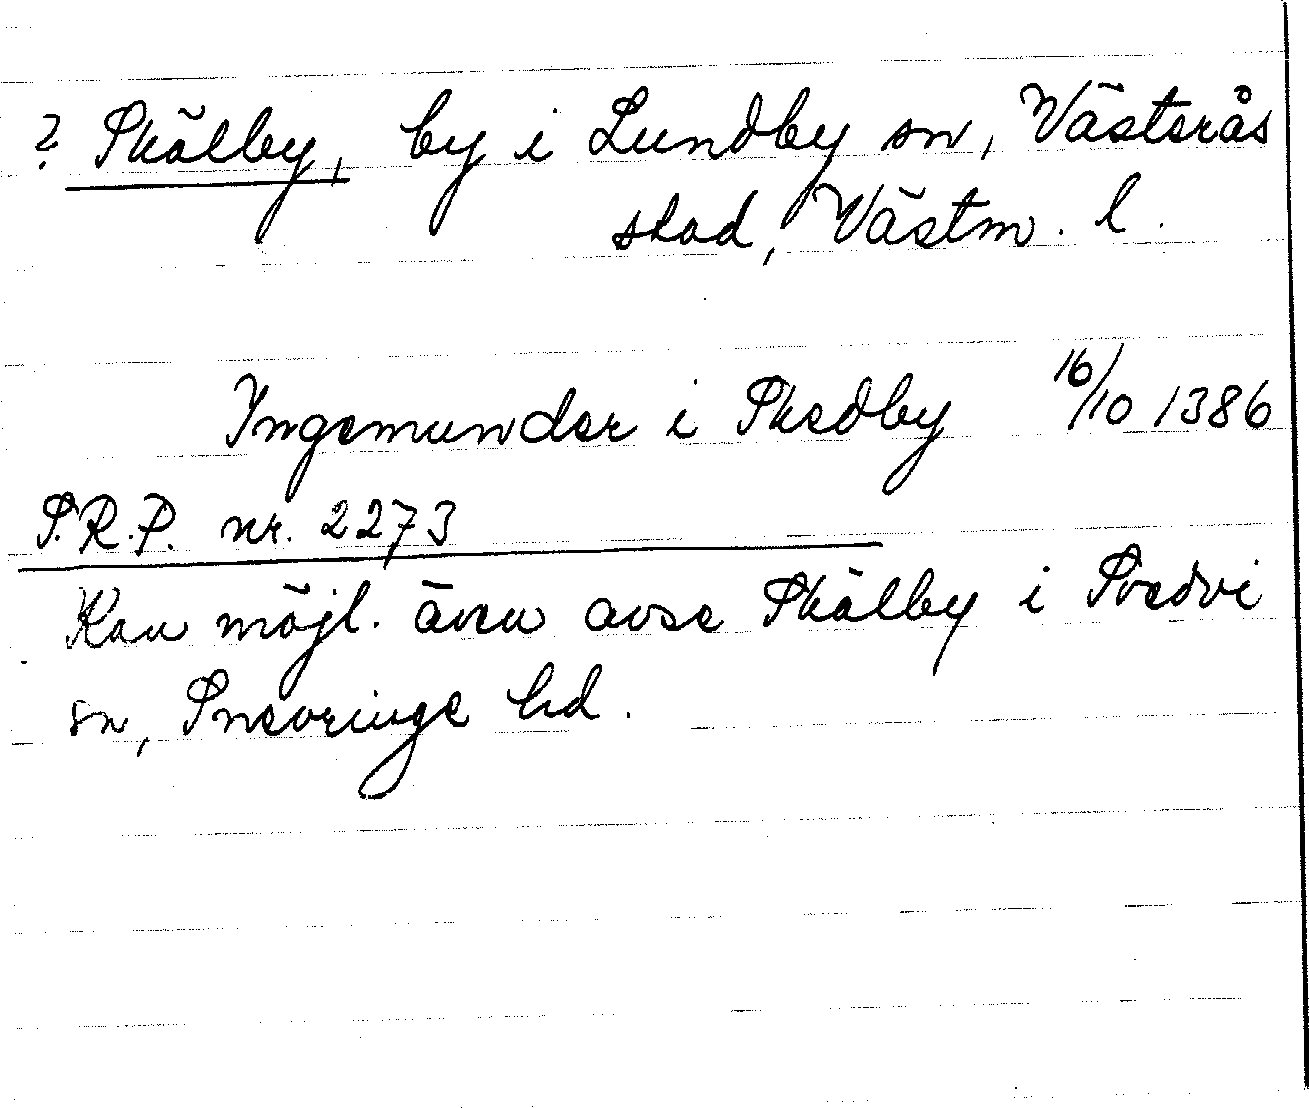 ? Skälby, by i Lundby sn, Västerås
stad, Västm. l.
Ingemunder i Skedby 16/10 1386
S.R.P. nr. 2273
Kan möjl. även avse Skälby i Svedvi
sn, Snevringe hd.